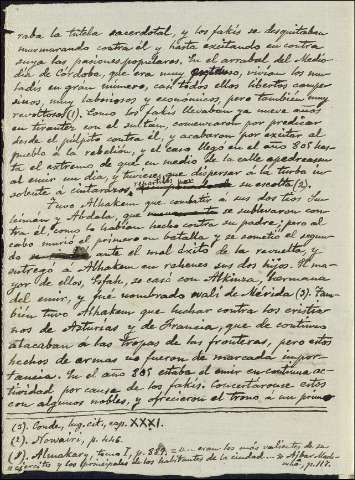 raba la tutela sacerdotal, y los fakis se desquitaban
murmurando contra él y hasta excitando en contra
suya las pasiones populares. En el arrabal del Medio-
dia de Córdoba, que era muy vivian los mu-
ladís en gran número, casi todos ellos libertos campe-
sinos, muy laboriosos y economicos, pero tambien muy
revoltosos (1). Como los fakis llevaban ya nueve años
en tirantez con el sultán, comenzaron por predicar
desde el púlpito contra él, y acabaron por excitar al
pueblo á la rebelión, y el caso llegó en el año 805 has-
ta el extremo de que en medio de la calle apedreasen
al emir un dia, y tuviese que dispersar á la turba in-
solente á cintarazos, repartidos por su escolta (2).
Tuvo Alhakem que combatir á sus dos tios Su-
leimán y Abdala, que se sublevaron con-
tra él como lo habian hecho contra su padre; pero al
cabo murió el primero en batalla, y se sometió el segun-
do ante el mal éxito de la revuelta, y
entregó á Alhakem en rehenes sus dos hijos. El ma-
yor de ellos, Esfah, se casó con Alkinsa, hermana
del emir, y fué nombrado wali de Mérida (3). Tam-
bien tuvo Alhakem que luchar contra los cristia-
nos de Asturias y de Francia, que de continuo
atacaban á las tropas de las fronteras, pero estos
hechos de armas no fueron de marcada impor-
tancia. En el año 805 estaba el emir en continua ac-
tividad por causa de los fakis. Concertaronse estos
con algunos nobles, y ofrecieron el trono á un primo
(3). Conde, lug. cit., cap. XXXI.
(2). Nowairi, p. 446.
(1). Almakary, tomo I, p. 889. = «... eran los más valientes de su
ejército y los principales de los habitantes de la ciudad...»
p. 117.